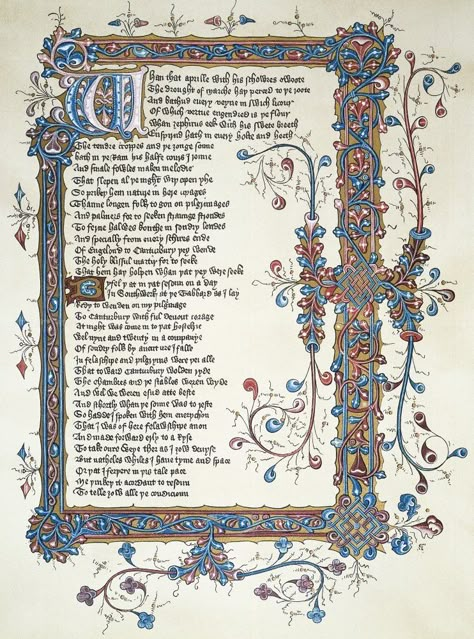 Whan that aprille with his schowres swoote
The drought of marche haþ perced to þe roote
And bathud every veyne in swich licour
Of which vertue engendred is þe flour
Whan zephirus eek wiþ his swete breeth
Enspirud hath in every holte and heeth
The tendre croppes and þe ȝonge sonne
hath in þe Ram his halfe cours I ronne
And smale fowles maken melodie
That slepen al þe night wiþ open yhe
So prikeþ hem nature in here corages
Thanne longen folk to gon on pilgrimages
And palmers for to seeken straunge strondes
To ferne halwes couthe in sondry londes
And specially from every schires ende
Of Engelond to Canturbury þey wende
The holy blisful martir for to seeke
That hem haþ holpen whan þat þey were seeke
Byfel þat in þat sesoun on a day
In Southwerk at þe Tabbard as I lay
Redy to wenden on my pilgrimage
To Canturbury wiþ ful devout corage
At night was come in to þat hostelrie
Wel nyne and twenty in a companye
Of sondry folk by aventure I falle
In felaschipe and pilgryms were þei alle
That toward Canturbury wolden ryde
The chambres and þe stables weren wyde
And wel we weren esud atte beste
And schortly whan þe sonne was to reste
So hadde I spoken wiþ hem everychon
That I was of here felawschipe anon
And made forward erly to aryse
To take oure weye ther as I ȝow devyse
But natheles whiles I have tyme and space
Or þat I ferþere in þis tale pace
Me þinkeþ it acordant to resoun
To telle ȝow alle þe condicioun